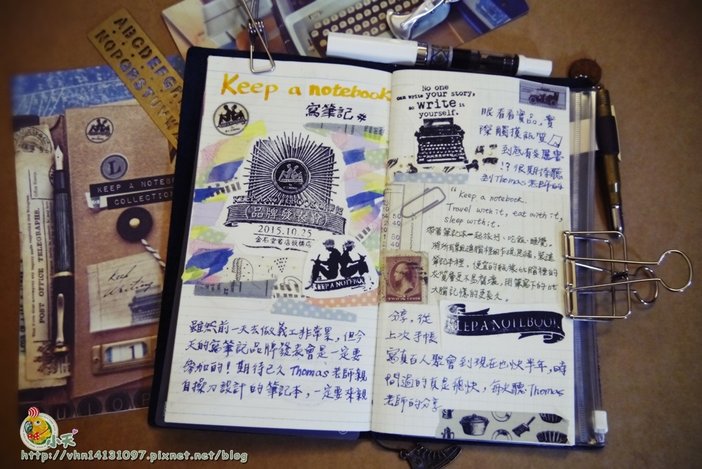 ABCDEFG
NOPQRST
L
KEEP A NOTEBOOK
COLLECTION
POST OFFICE TELEGRAPHS.
Keep a notebook
寫筆記
《品牌發表會》
2015.10.25
金石堂書店城中店
KEEP A NOTEBOOK
雖然前一天去做義工非常累，但今
天的寫筆記品牌發表會是一定要
參加的！期待已久Thomas老師親
自操刀設計的筆記本，一定要來親
No one
can write your story,
so write it
yourself.
眼看看實品，實
際觸摸紙質
到底有多厲害
!? 很期待聽
到Thomas老師的
"Keep a notebook.
Travel with it, eat with it,
sleep with it.
帶著筆記本一起旅行、吃飯、睡覺，
筆記本裡，
大腦記憶的是長久。
分享，從
上次手帳
KEEP A NOTEBOOK
寫真百人聚會到現在也快半年，時
間過的真是飛快，每次聽Thomas
老師的分享
小天
http://vhn14131097.pixnet.net/blog